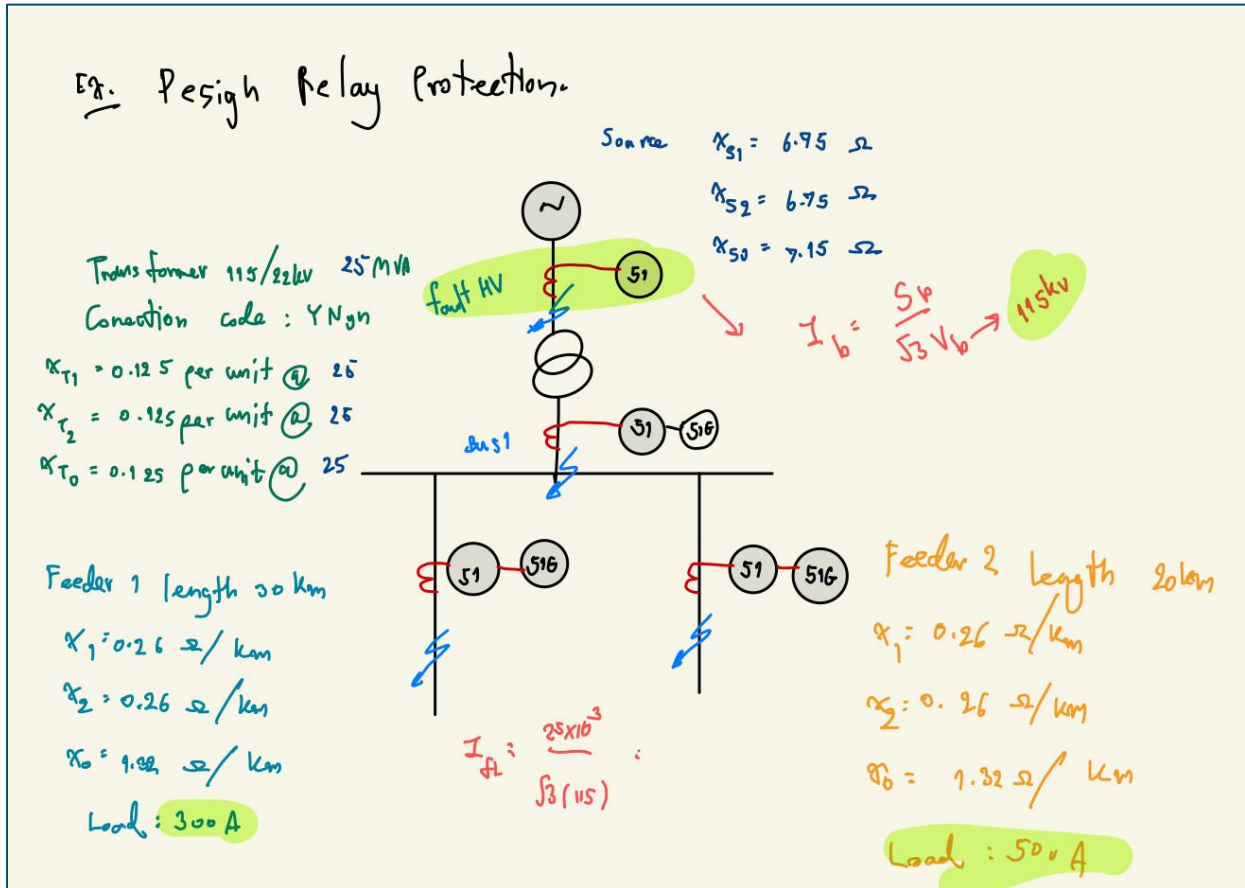 Ex. Pesigh Relay Protection.
Source x_S1 = 6.75 Ω
x_S2 = 6.75 Ω
x_S0 = 7.15 Ω
Transformer 115/22kV 25 MVA
Conection code : YNyn
x_T1 = 0.125 per unit @ 25
x_T2 = 0.125 per unit @ 25
x_T0 = 0.125 per unit @ 25
fault HV
51
I_b = S_b / √3 V_b → 115kV
Bus1
51
51G
51
51G
51
51G
Feeder 1 length 30 km
x_1 = 0.26 Ω/km
x_2 = 0.26 Ω/km
x_0 = 1.32 Ω/km
Load : 300 A
I_fL = 25×10^3 / √3(115) =
Feeder 2 Length 20km
x_1 = 0.26 Ω/km
x_2 = 0.26 Ω/km
x_0 = 1.32 Ω/km
Load : 500 A